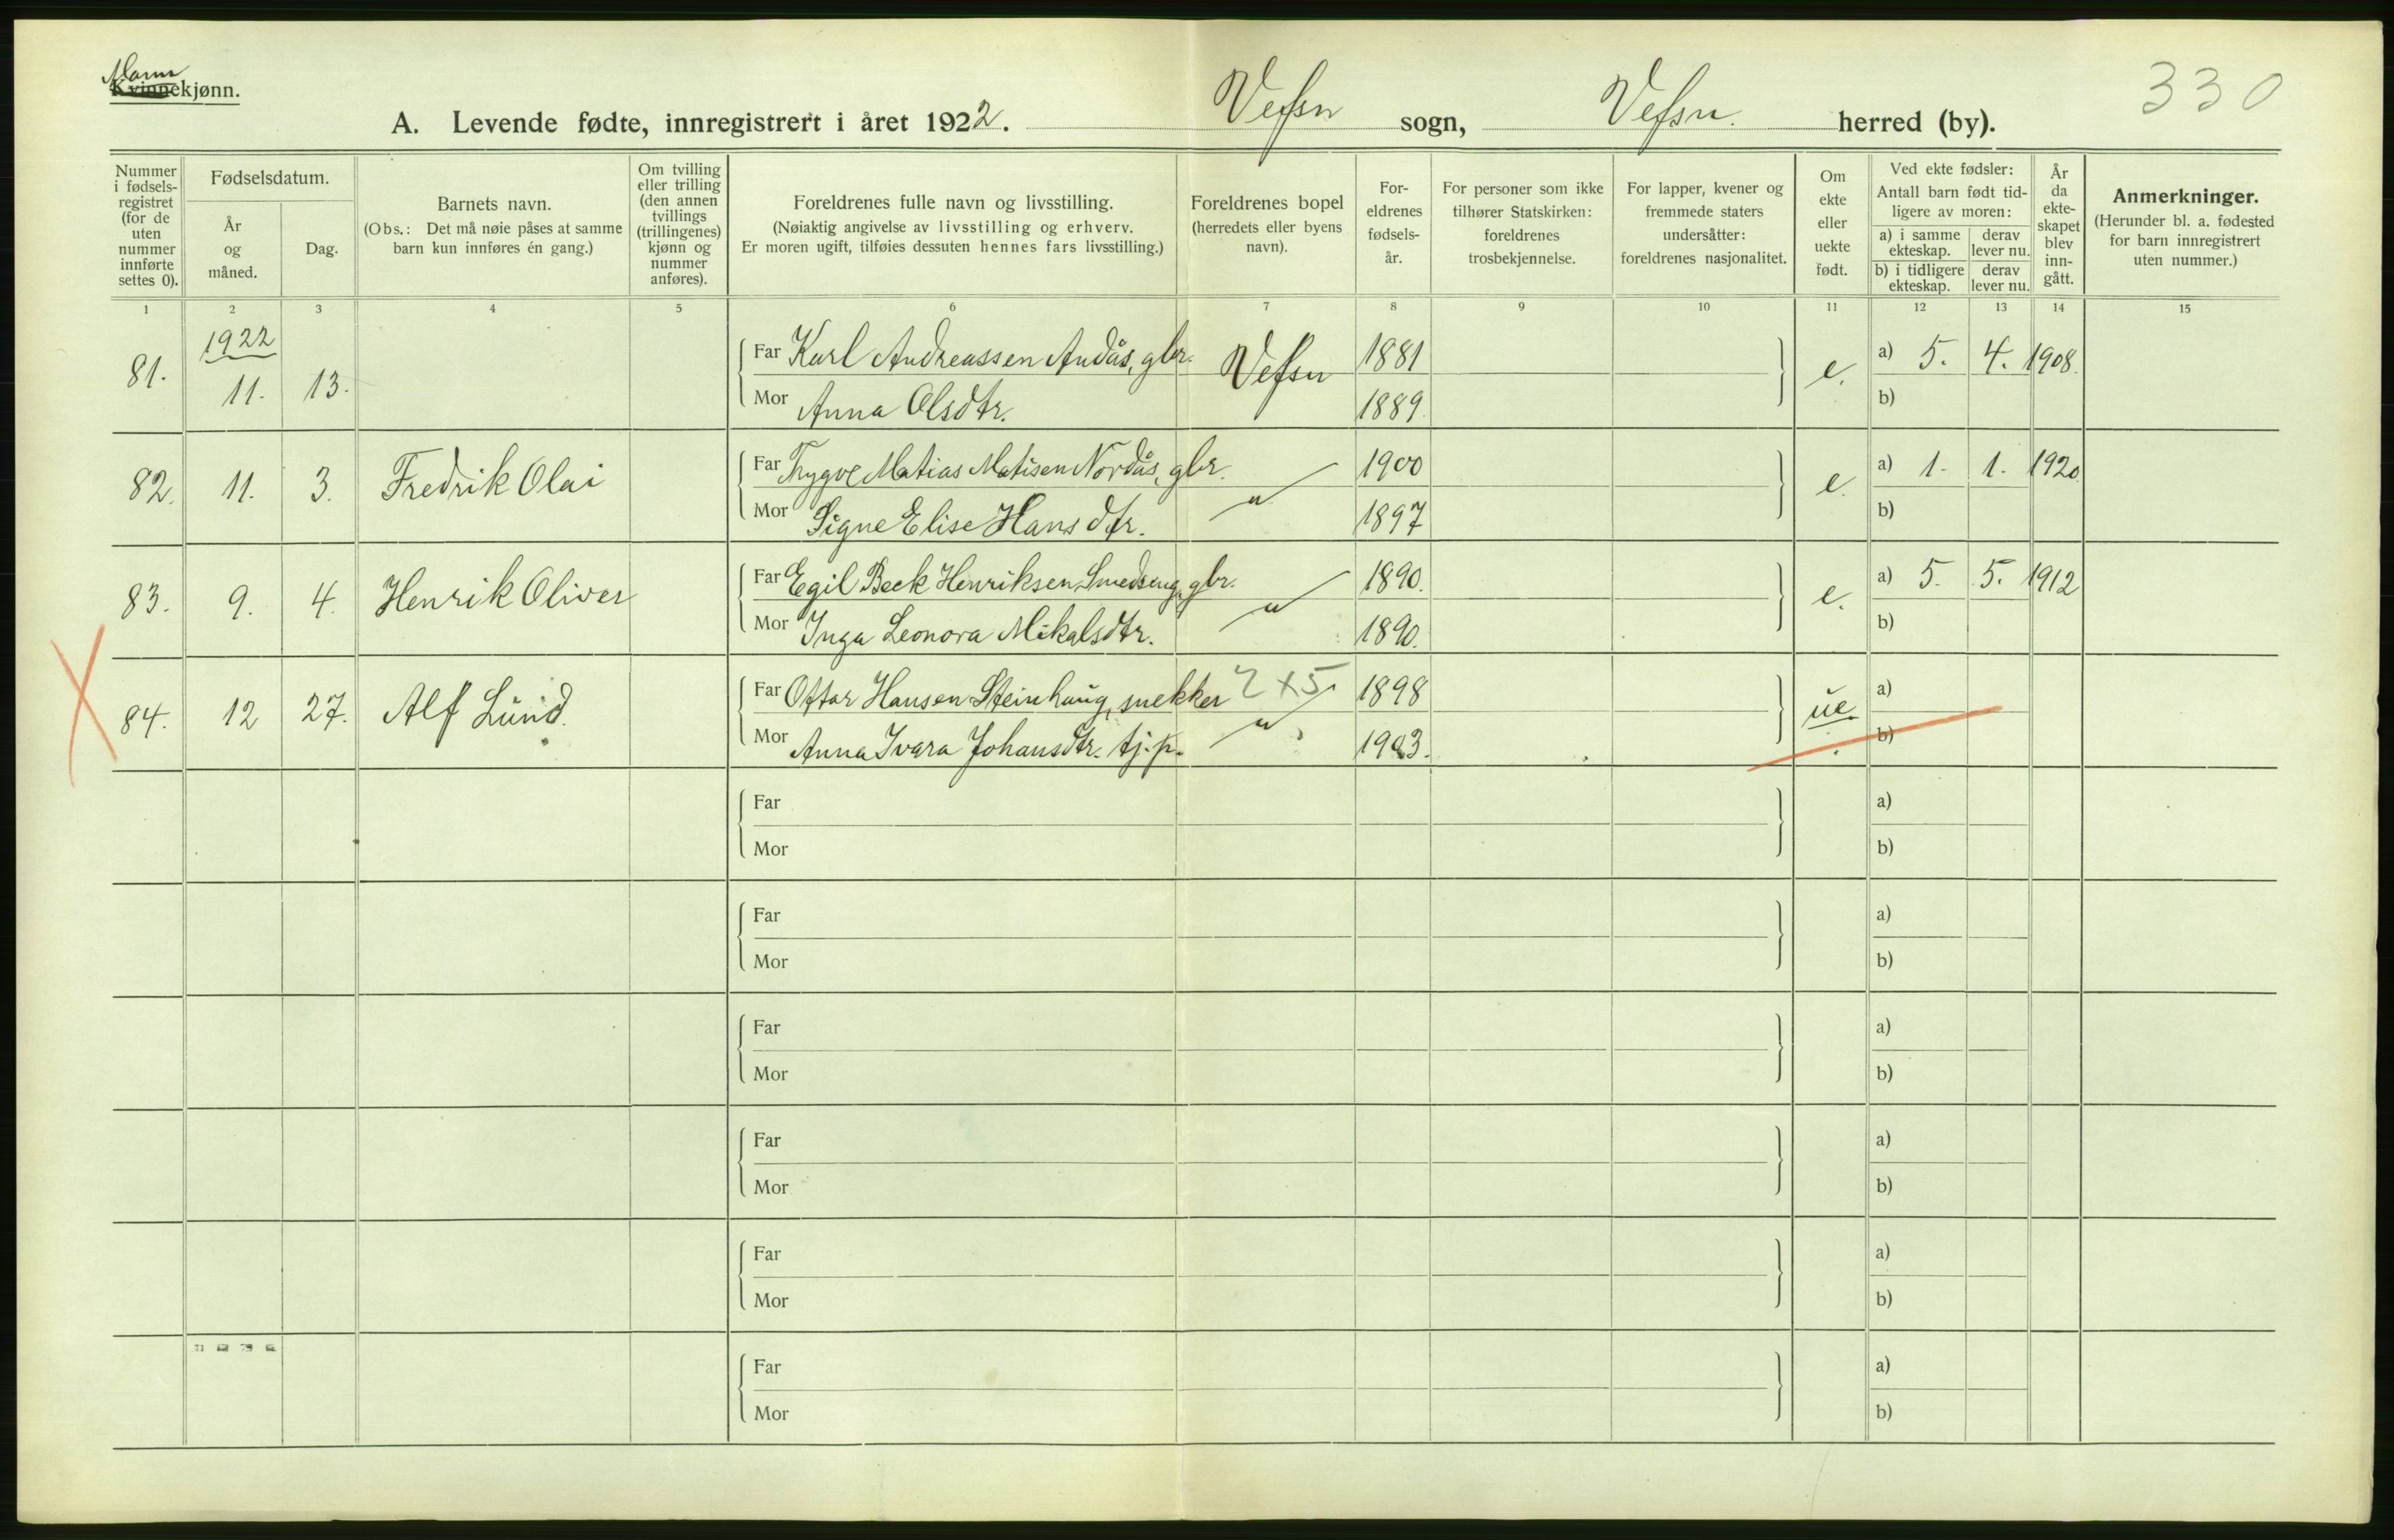 Mann
Kvinnekjønn.
330
A. Levende fødte, innregistrert i året 1922. Vefsn sogn, Vefsn. herred (by).
Nummer i fødsels-registret (for de uten nummer innførte settes 0).
Fødselsdatum.
År og måned.
Dag.
Barnets navn.
(Obs.: Det må nøie påses at samme barn kun innføres én gang.)
Om tvilling eller trilling (den annen tvillings (trillingenes) kjønn og nummer anføres).
Foreldrenes fulle navn og livsstilling.
(Nøiaktig angivelse av livsstilling og erhverv.
Er moren ugift, tilføies dessuten hennes fars livsstilling.)
Foreldrenes bopel (herredets eller byens navn).
For-eldrenes fødsels-år.
For personer som ikke tilhører Statskirken: foreldrenes trosbekjennelse.
For lapper, kvener og fremmede staters undersåtter: foreldrenes nasjonalitet.
Om ekte eller uekte født.
Ved ekte fødsler:
Antall barn født tid-ligere av moren:
a) i samme ekteskap.
derav lever nu.
b) i tidligere ekteskap.
derav lever nu.
År da ekte-skapet blev inn-gått.
Anmerkninger.
(Herunder bl. a. fødested for barn innregistrert uten nummer.)
1 2 3 4 5 6 7 8 9 10 11 12 13 14 15
1922
81. 11. 13. Far Karl Andreassen Andås, gbr. Vefsn 1881 e. a) 5. 4. 1908.
Mor Anna Olsdtr. 1889. b)
82. 11. 3. Fredrik Olai Far Trygve Matias Matisen Nordås, gbr. " 1900 e. a) 1. 1. 1920.
Mor Signe Elise Hansdtr. 1897 b)
83. 9. 4. Henrik Oliver Far Egil Beck Henriksen Smedseng, gbr. " 1890. e. a) 5. 5. 1912
Mor Inga Leonora Mikalsdtr. 1890. b)
84. 12 27. Alf Lund. Far Ottar Hansen Steinhaug, snekker 2 x 5 " 1898 ue. a)
Mor Anna Ivara Johansdtr. tj.p. 1903. b)
Far a)
Mor b)
Far a)
Mor b)
Far a)
Mor b)
Far a)
Mor b)
Far a)
Mor b)
Far a)
Mor b)